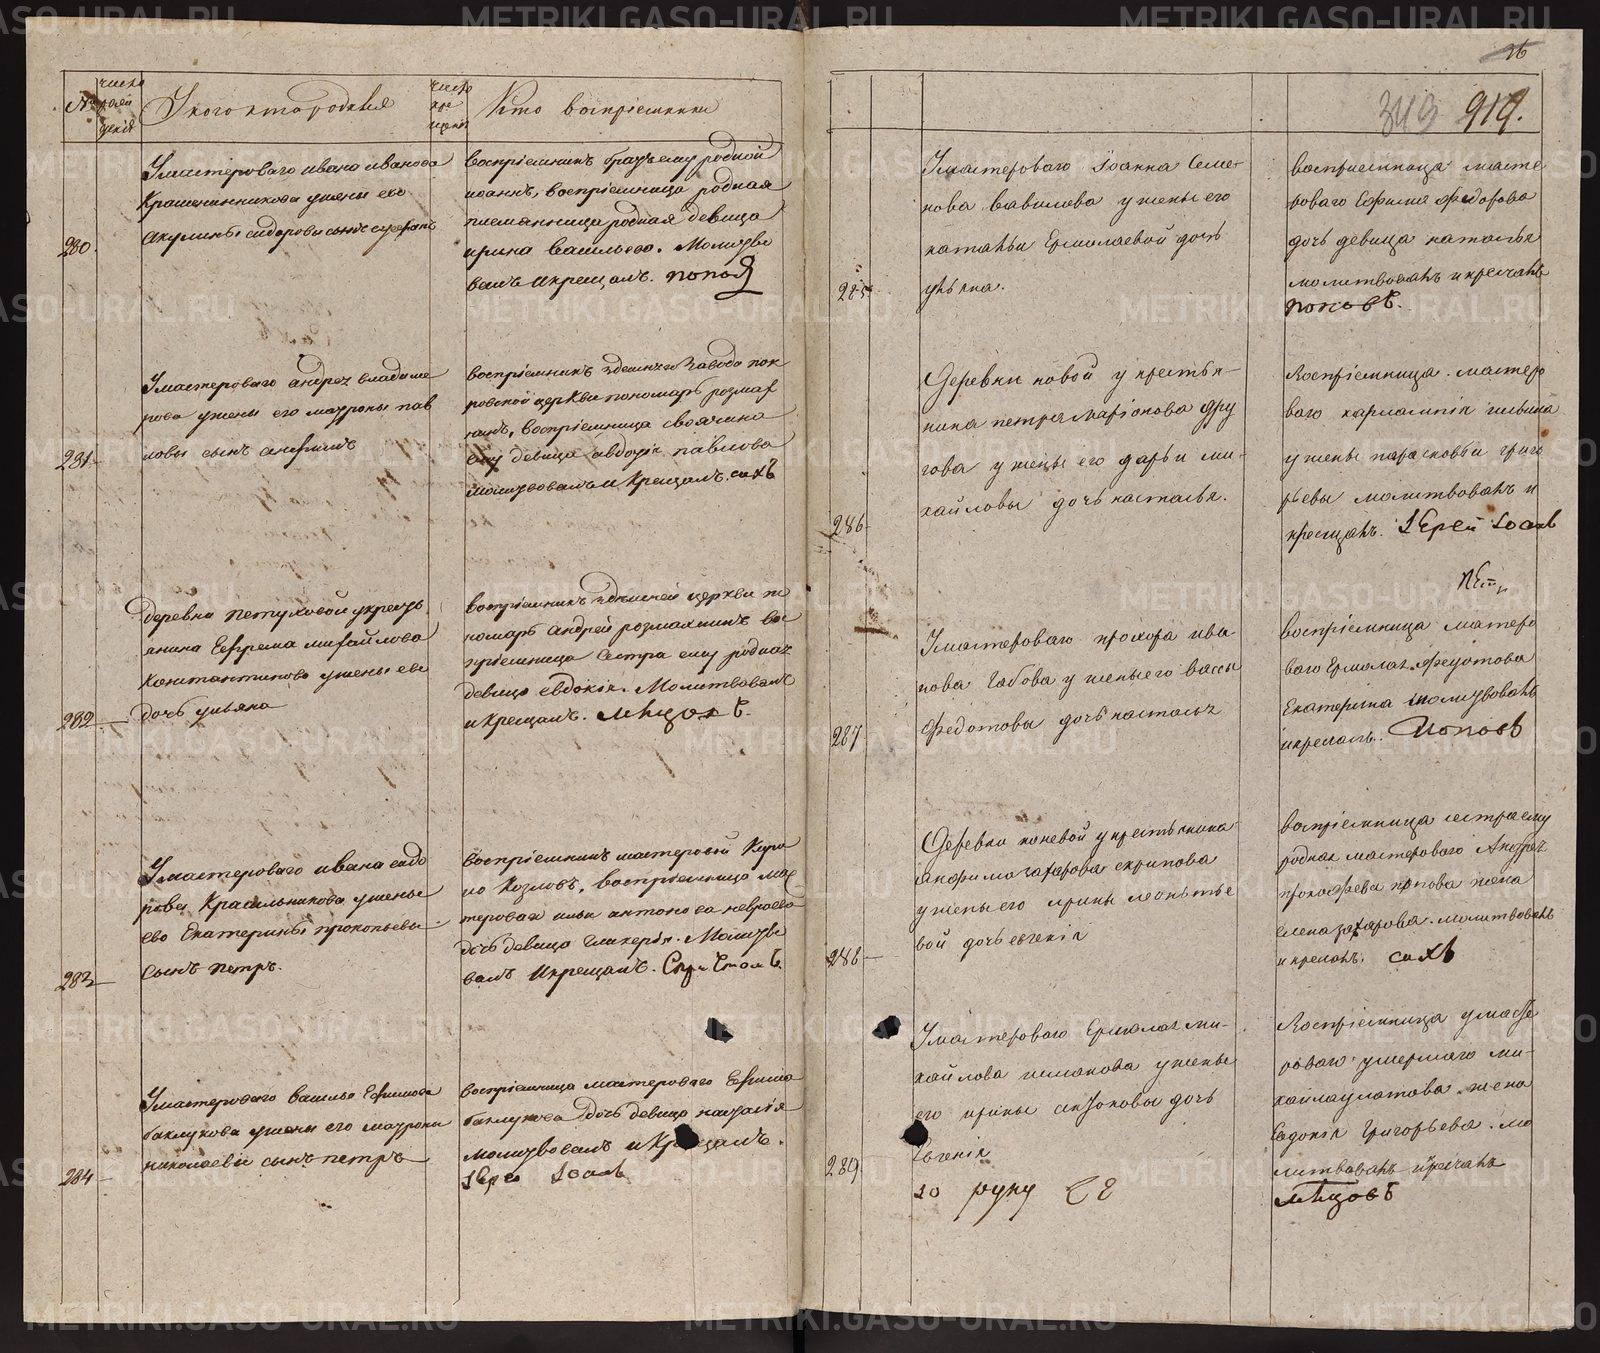 №
число
рожд
дения
У кого кто родился
число
кре
щения
Кто восприемники
280.
У мастероваго ивана иванова
Крашенинникова у жены его
Акулины сидоровы сынъ
восприемникъ братъ ему родной
иоаннъ, восприемница родная
племянница родная девица
ирина Васильева. Молитво
валъ и крещалъ. попов
281
У мастероваго андрея владиме
рова у жены его мавроны пав
ловы сынъ
восприемникъ здешнего завода пок
ровской церкви пономарь
восприемница своячина
ему девица авдотья павлова
молитвовалъ и Крещалъ. сахъ
282
деревни петуховой у кресть
янина Ефрема михайлова
Константинова у жены ево
дочь ульяна
восприемникъ здешней церкви по
номарь Андрей розмахнинъ вос
приемница сестра ему родная
девица евдокия. Молитвовалъ
и крещалъ.
283
У мастероваго ивана сидо
рова Красильникова у жены
ево Екатерины прокопьевы
сынъ петръ.
восприемникъ мастеровой Кири
ло Козловъ, восприемница мас
терова ильи антонова
дочь девица гликерия. Молитво
валъ и крещалъ.
284
У мастероваго василья Ефимова
баклукова у жены его мавроны
николаевы сынъ петръ
восприемница мастероваго Ефима
баклукова дочь девица наталья
молитвовалъ и Крещалъ.
26
343 919.
285
У мастероваго Иоанна Семе-
нова вавилова у жены его
натальи Ермолаевой дочь
ульяна.
восприемница масте
роваго Ефима федорова
дочь девица наталья
молитвовалъ и кресчалъ
поповъ.
286
Деревни новой у крестья-
нина петра Ларионова дру
гова у жены его дарьи ми-
хайловы дочь наталья.
Восприемница. мастеро
ваго харлампия ильина
у жены парасковьи григо
рьевы молитвовалъ и
крещалъ. Iерей Iоанъ
287
У мастероваго прохора ива
нова Габова у жены его вассы
федотовы дочь наталья
восприемница мастеро
ваго Ермолая федотова
Екатерина молитвовалъ
и кресчалъ. Поповъ
288
Деревни коневой у крестьянина
анфима захарова скрипова
у жены его ирины леонтье
вой дочь евгения
восприемница сестра ему
родная мастероваго Андрея
прокофьева попова жена
елена захарова. молитвовалъ
и кресчалъ. сахъ
289
У мастероваго Ермолая ми-
хайлова исмакова у жены
его ирины антоновы дочь
Евгения
Восприемница у масте
роваго умершаго ми-
хаила улатова жена
Евдокия Григорьева. мо
литвовалъ и кресчалъ